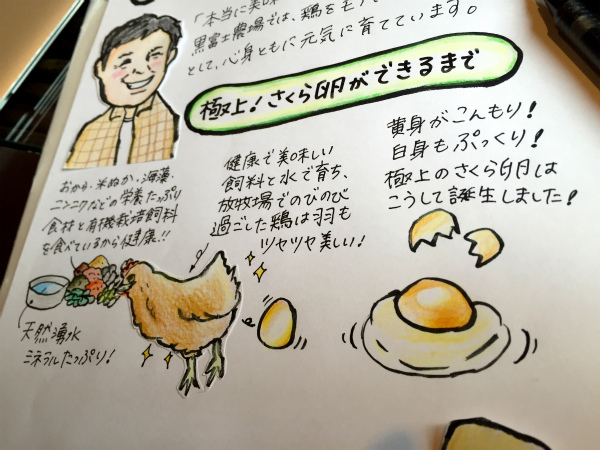 「本当に美味
黒富士農場では、鶏をモ
として、心身ともに元気に育てています。
極上！さくら卵ができるまで
おから・米ぬか・海藻・
ニンニクなどの栄養たっぷり
食材と有機栽培飼料
を食べているから健康！！
天然湧水
ミネラルたっぷり！
健康で美味しい
飼料と水で育ち、
放牧場でのびのび
過ごした鶏は羽も
ツヤツヤ美しい！
黄身がこんもり！
白身もぷっくり！
極上のさくら卵は
こうして誕生しました！